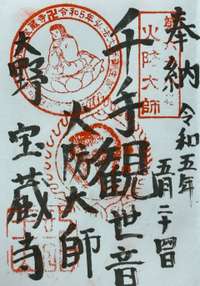 奉納
令和五年
五月二十四日
火防大師
千手観世音
火防大師
大野 宝蔵寺